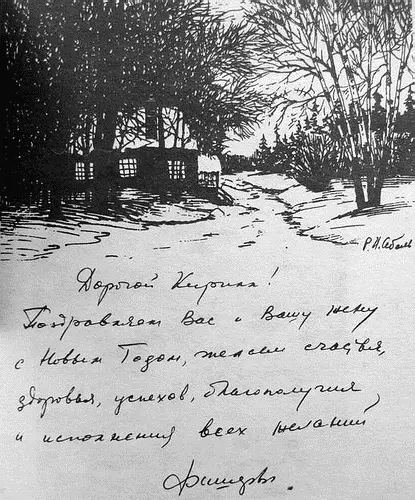 Р. И. Абель
Дорогой Кирилл!
Поздравляем Вас и Вашу жену
с Новым Годом, желаем счастья,
здоровья, успехов, благополучия
и исполнения всех желаний